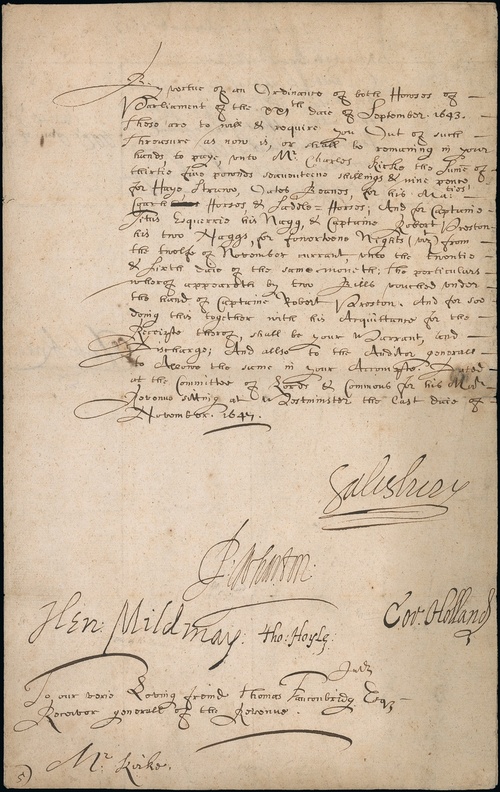 By vertue of an Ordinance of both Howses of
Parliament of the xxith daie of September. 1643.
These are to will & require you Out of such
Threasure as now is, or shall be remaining in your
hands to paye, unto Mr Charles Kirke the Sume of
thirtie five pownds seaventeene shillings & nine pence
for Haye, Strawe, Oates, Beanes, for his Maties
Horses & Sadle-Horses; And for Captaine
Esquerrie his Nagg, & Captaine Robert Preston
his two Naggs, for fowerteene Nights (viz) from
the twelfe of November currant, unto the twentie
& sixth daie of the same moneth; the perticulars
wherof appeareth by two Bills vouched under
the hand of Captaine Robert Preston. And for soe
doing this together with his Acquittance for the
Receipte therof, shall be your Warrant, and
Discharge; And allso to the Auditor generall
to Allowe the same in your Accompte. Dated
at the Committee of Lords & Commons for his Mats
Revenue sitting at Westminster the last daie of
November. 1647.
Salesbury
P: Wharton.
Hen: Mildmay. Tho: Hoyle: Cor: Holland
To our verie Loving freind Thomas Fauconbridg Esqr
Receivor generall of the Revenue.
Mr. Kirke.
5)